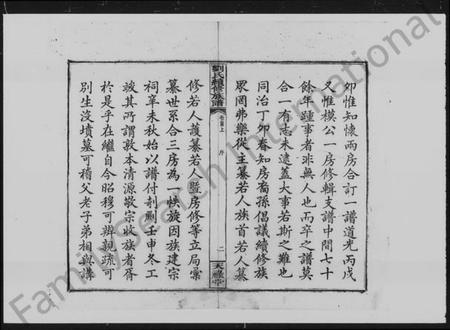 卯惟知懷兩房合訂一譜道光丙戌
又惟模公一房修輯支譜中間七十
餘年踵事者非無人也而卒之譜莫
合一有志未逮蓋大事若斯之難也
同治丁卯春知房裔孫倡議續修族
眾罔弗樂從主纂若人族首若人纂
劉氏續修族譜
卷首上 序 二 天祿堂
修若人護纂若人暨房修等立局彙
纂世系合三房為一帙旋因族建宗
祠辛未秋始以譜付剞劂壬申冬工
竣其所謂敦本清源敬宗收族者胥
於是乎在繼自今昭穆可辨親疏可
別生沒墳墓可稽父老子弟相與講
FamilySearch International